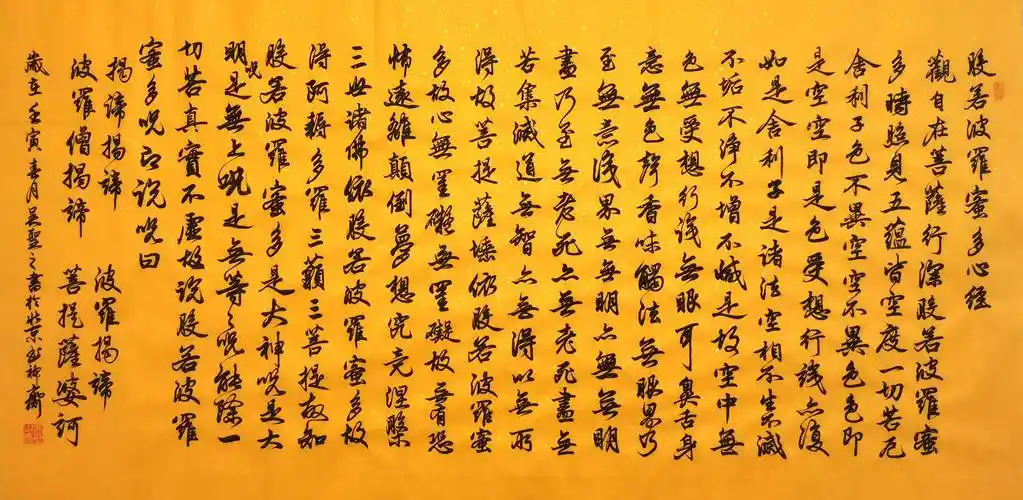 般若波羅蜜多心經
觀自在菩薩行深般若波羅蜜
多時照見五蘊皆空度一切苦厄
舍利子色不異空空不異色色即
是空空即是色受想行識亦復
如是舍利子是諸法空相不生不滅
不垢不淨不增不減是故空中無
色無受想行識無眼耳鼻舌身
意無色聲香味觸法無眼界乃
至無意識界無無明亦無無明
盡乃至無老死亦無老死盡無
苦集滅道無智亦無得以無所
得故菩提薩埵依般若波羅蜜
多故心無罣礙無罣礙故無有恐
怖遠離顛倒夢想究竟涅槃
三世諸佛依般若波羅蜜多故
得阿耨多羅三藐三菩提故知
般若波羅蜜多是大神咒是大
明咒是無上咒是無等々咒能除一
切苦真實不虛故說般若波羅
蜜多咒即說咒曰
揭諦揭諦 波羅揭諦
波羅僧揭諦 菩提薩婆訶
歲在壬寅春月 之書於北京